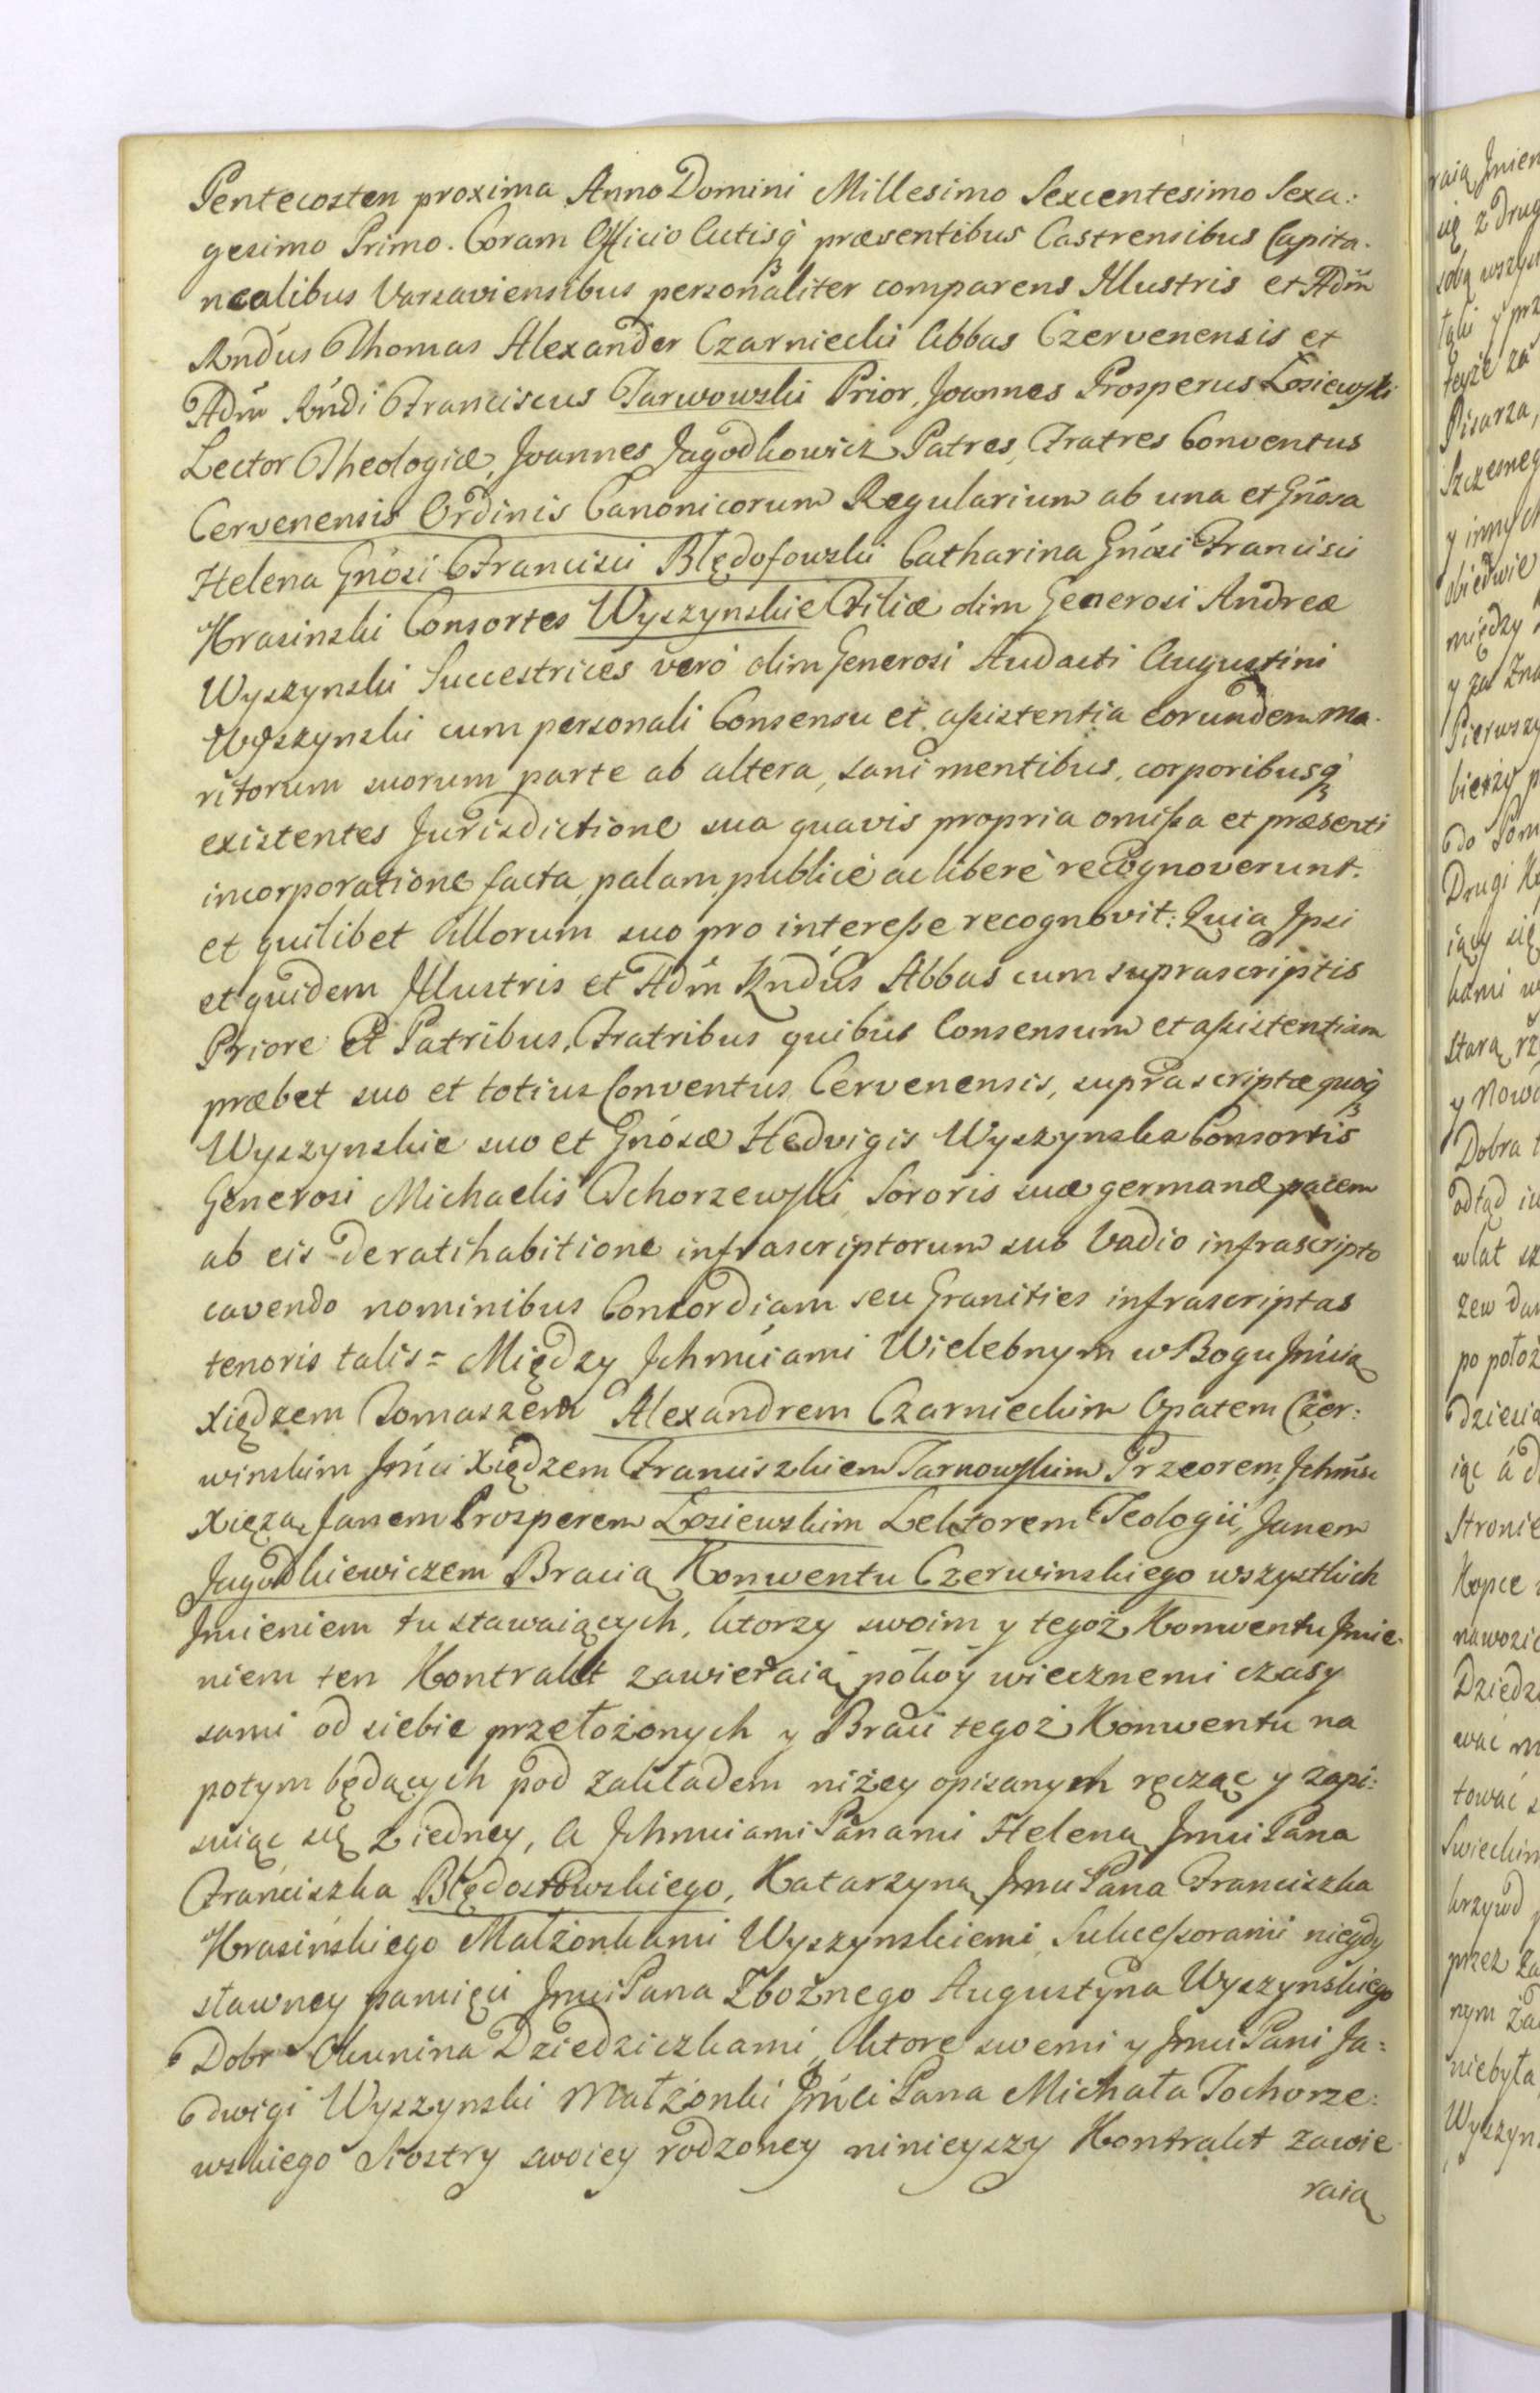 Pentecosten proxima Anno Domini Millesimo Sexcentesimo Sexa:
gesimo Primo. Coram Officio Actisq̃ præsentibus Castrensibus Capita-
nealibus Varsaviensibus personaliter comparens Illustris et Adm̃
Rndus Thomas Alexander Czarniecki Abbas Czervenensis et
Adm̃ Rńdi Franciscus Tarwowski Prior, Joannes Prosperus Łosiewski
Lector Theologiæ, Joannes Jagodkowicz Patres, Fratres Conventus
Cervenensis Ordinis Canonicorum Regularium ab una et Gńosa
Helena Gńosi Francisci Blędofowski Catharina Gńosi Francisci
Krasinski Consortes Wyszynskie Filiæ olim Generosi Andreæ
Wyszynski Succestrices veró olim Generosi Audacti Augustini
Wyszynski cum personali Consensu et assistentia eorundem ma-
ritorum suorum parte ab altera, sani mentibus, corporibusq̃
existentes Jurisdictione sua quavis propria omissa et præsenti
incorporatione facta, palam, publicè ac liberè recognoverunt.
et quilibet illorum suo pro interesse recognovit: Quia Ipsi
et quidem Illustris et Adm̃ Rńdus Abbas cum suprascriptis
Priore et Patribus, Fratribus quibus Consensum et assistentiam
præbet suo et totius Conventus Cervenensis, suprascriptæ quoq̃
Wyszynskie suo et Gńosæ Hedvigis Wyszynska Consortis
Generosi Michaelis Tchorzewski Sororis suæ germanæ pacem
ab eis de ratihabitione infrascriptorum sub Vadio infrascripto
cavendo nominibus Concordiam seu Granities infrascriptas
tenoris talis = Między Ichmciami Wielebnym w Bogu Jmcią
Xiędzem Tomaszem Alexandrem Czarnieckim Opatem Czer:
winskim Jmci Xiędzem Franciszkiem Tarnowskim Przeorem, Ichmśc
Xięzą, Janem Prosperem Łosiewskim Lektorem Teologii, Janem
Jagodkiewiczem Bracią Konwentu Czerwinskiego wszystkich
Jmieniem tu stawaiących, ktorzy swoim y tegoż Konwentu Jmie-
niem ten Kontrakt zawieraią pókóy wiecznemi czasy
sami od siebie przełożonych y Braci tegoż Konwentu na
potym będących pod zakładem niżey opisanym ręcząc y zapi:
suiąc się z iedney, A Ichmciami Panami Heleną Jmci Pana
Franciszka Blędostowskiego, Katarzyną Jmci Pana Franciszka
Krasińskiego Małżonkami Wyszynskiemi Sukcessorami niegdy
sławney pamięci Jmci Pana Zbożnego Augustyna Wyszynskiego
Dobr Okunina Dziedziczkami, ktore swemi y Jmci Pani Ja=
dwigi Wyszynski Małżonki Jmci Pana Michała Tochorze:
wskiego Siostry swoiey rodzoney ninieyszy Kontrakt zawie-
raią